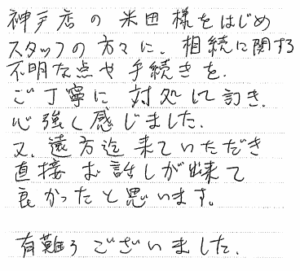 神戸店の米田様をはじめ
スタッフの方々に、相続に関する
不明な点や手続きを、
ご丁寧に対処して訂き、
心強く感じました。
又、遠方迄来ていただき
直接お話しが出来て
良かったと思います。
有難うございました。